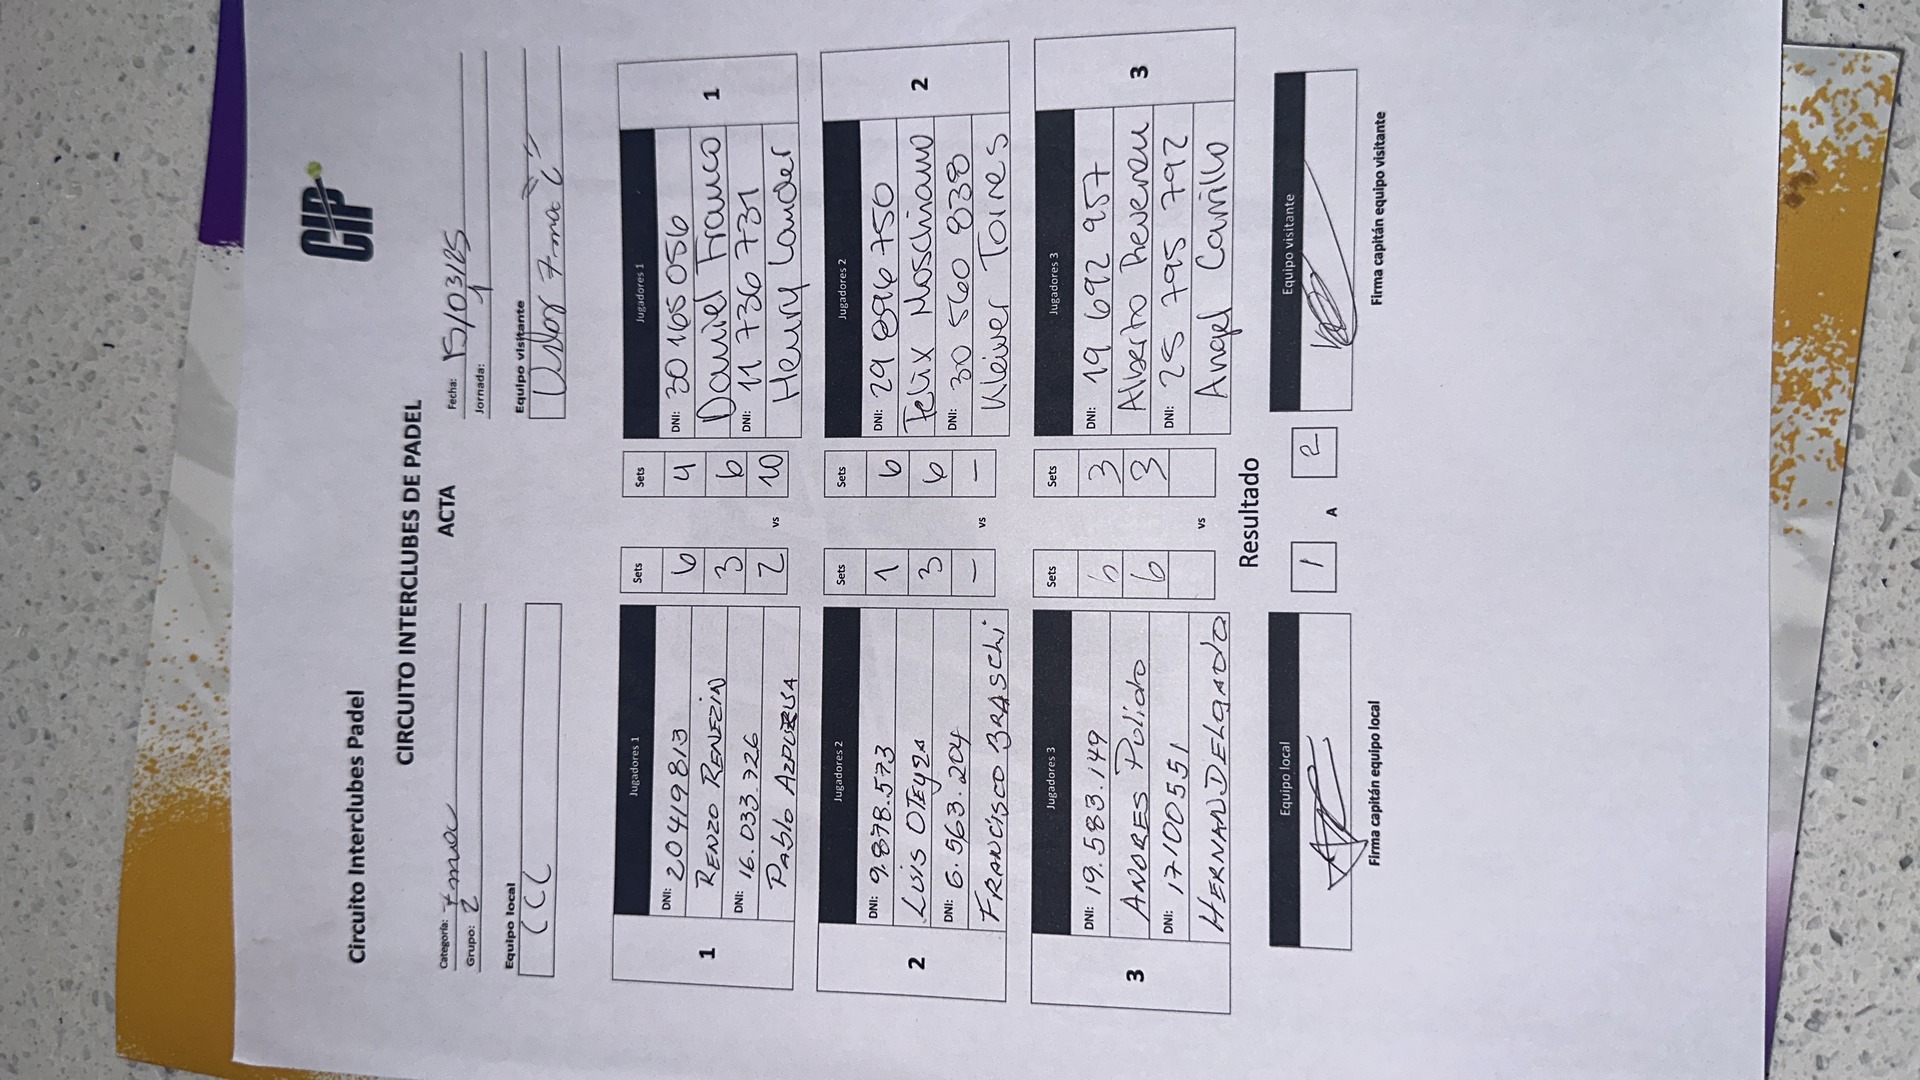 CIP
Circuito Interclubes Padel
CIRCUITO INTERCLUBES DE PADEL
ACTA
Categoría: 7mac
Fecha: 15/03/25
Grupo: 2
Jornada: 1
Equipo local
Equipo visitante
CCC
7ma "C"
Jugadores 1
Sets
Sets
Jugadores 1
1
DNI: 20419813
6
4
DNI: 30165056
1
RENZO RENEZIN
3
6
Daniel Franco
DNI: 16.033.726
2
vs
10
DNI: 11 736 731
Pablo AZPURUA
Henry Lander
Jugadores 2
Sets
Sets
Jugadores 2
2
DNI: 9.878.573
1
6
DNI: 29 896 750
2
Luis OTEyZA
3
6
Felix Moschiano
DNI: 6.563.204
-
vs
-
DNI: 30 560 838
FRANCISCO BRASChi
Kleiver Torres
Jugadores 3
Sets
Sets
Jugadores 3
3
DNI: 19.583.149
6
3
DNI: 19 692 957
3
ANDRES Pulido
6
3
Alberto
DNI: 17100551
vs
DNI: 25 795 792
HERNAN DELGADO
Angel Carrillo
Resultado
Equipo local
1
A
2
Equipo visitante
Firma capitán equipo local
Firma capitán equipo visitante